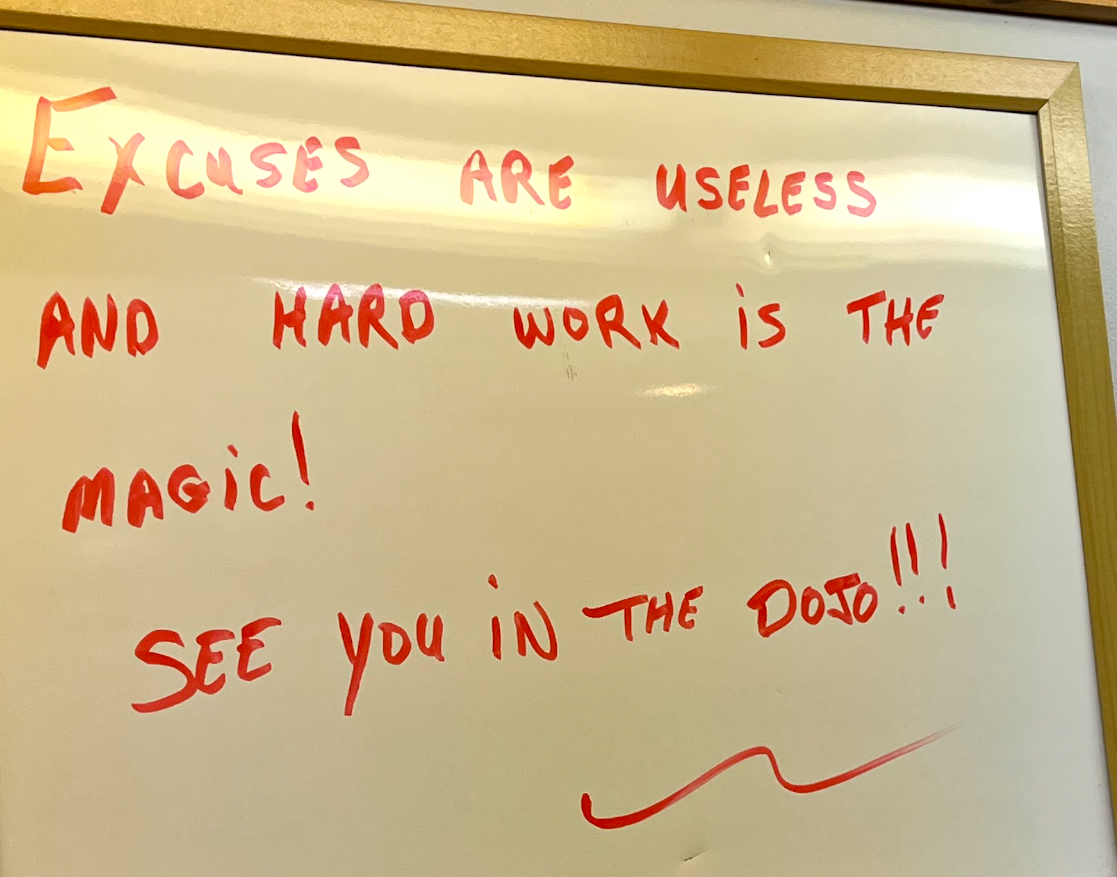 EXCUSES ARE USELESS
AND HARD WORK iS THE
MAGiC!
SEE YOU iN THE DOJO!!!